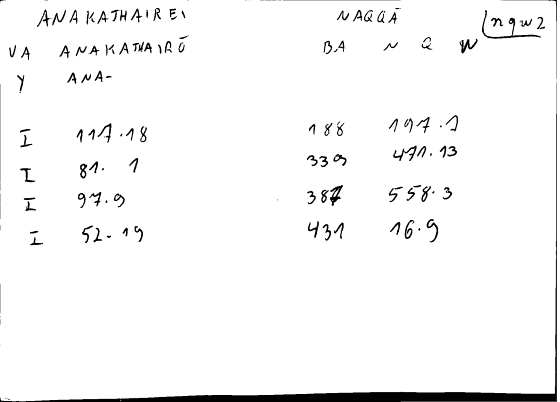 ANAKATHAIREI NAQQĀ ngw2
VA ANAKATHAIRŌ BA N Q W
Y ANA-
I 117.18 188 197.7
I 81. 1 339 471.13
I 97.9 387 558.3
I 52-19 431 16.9